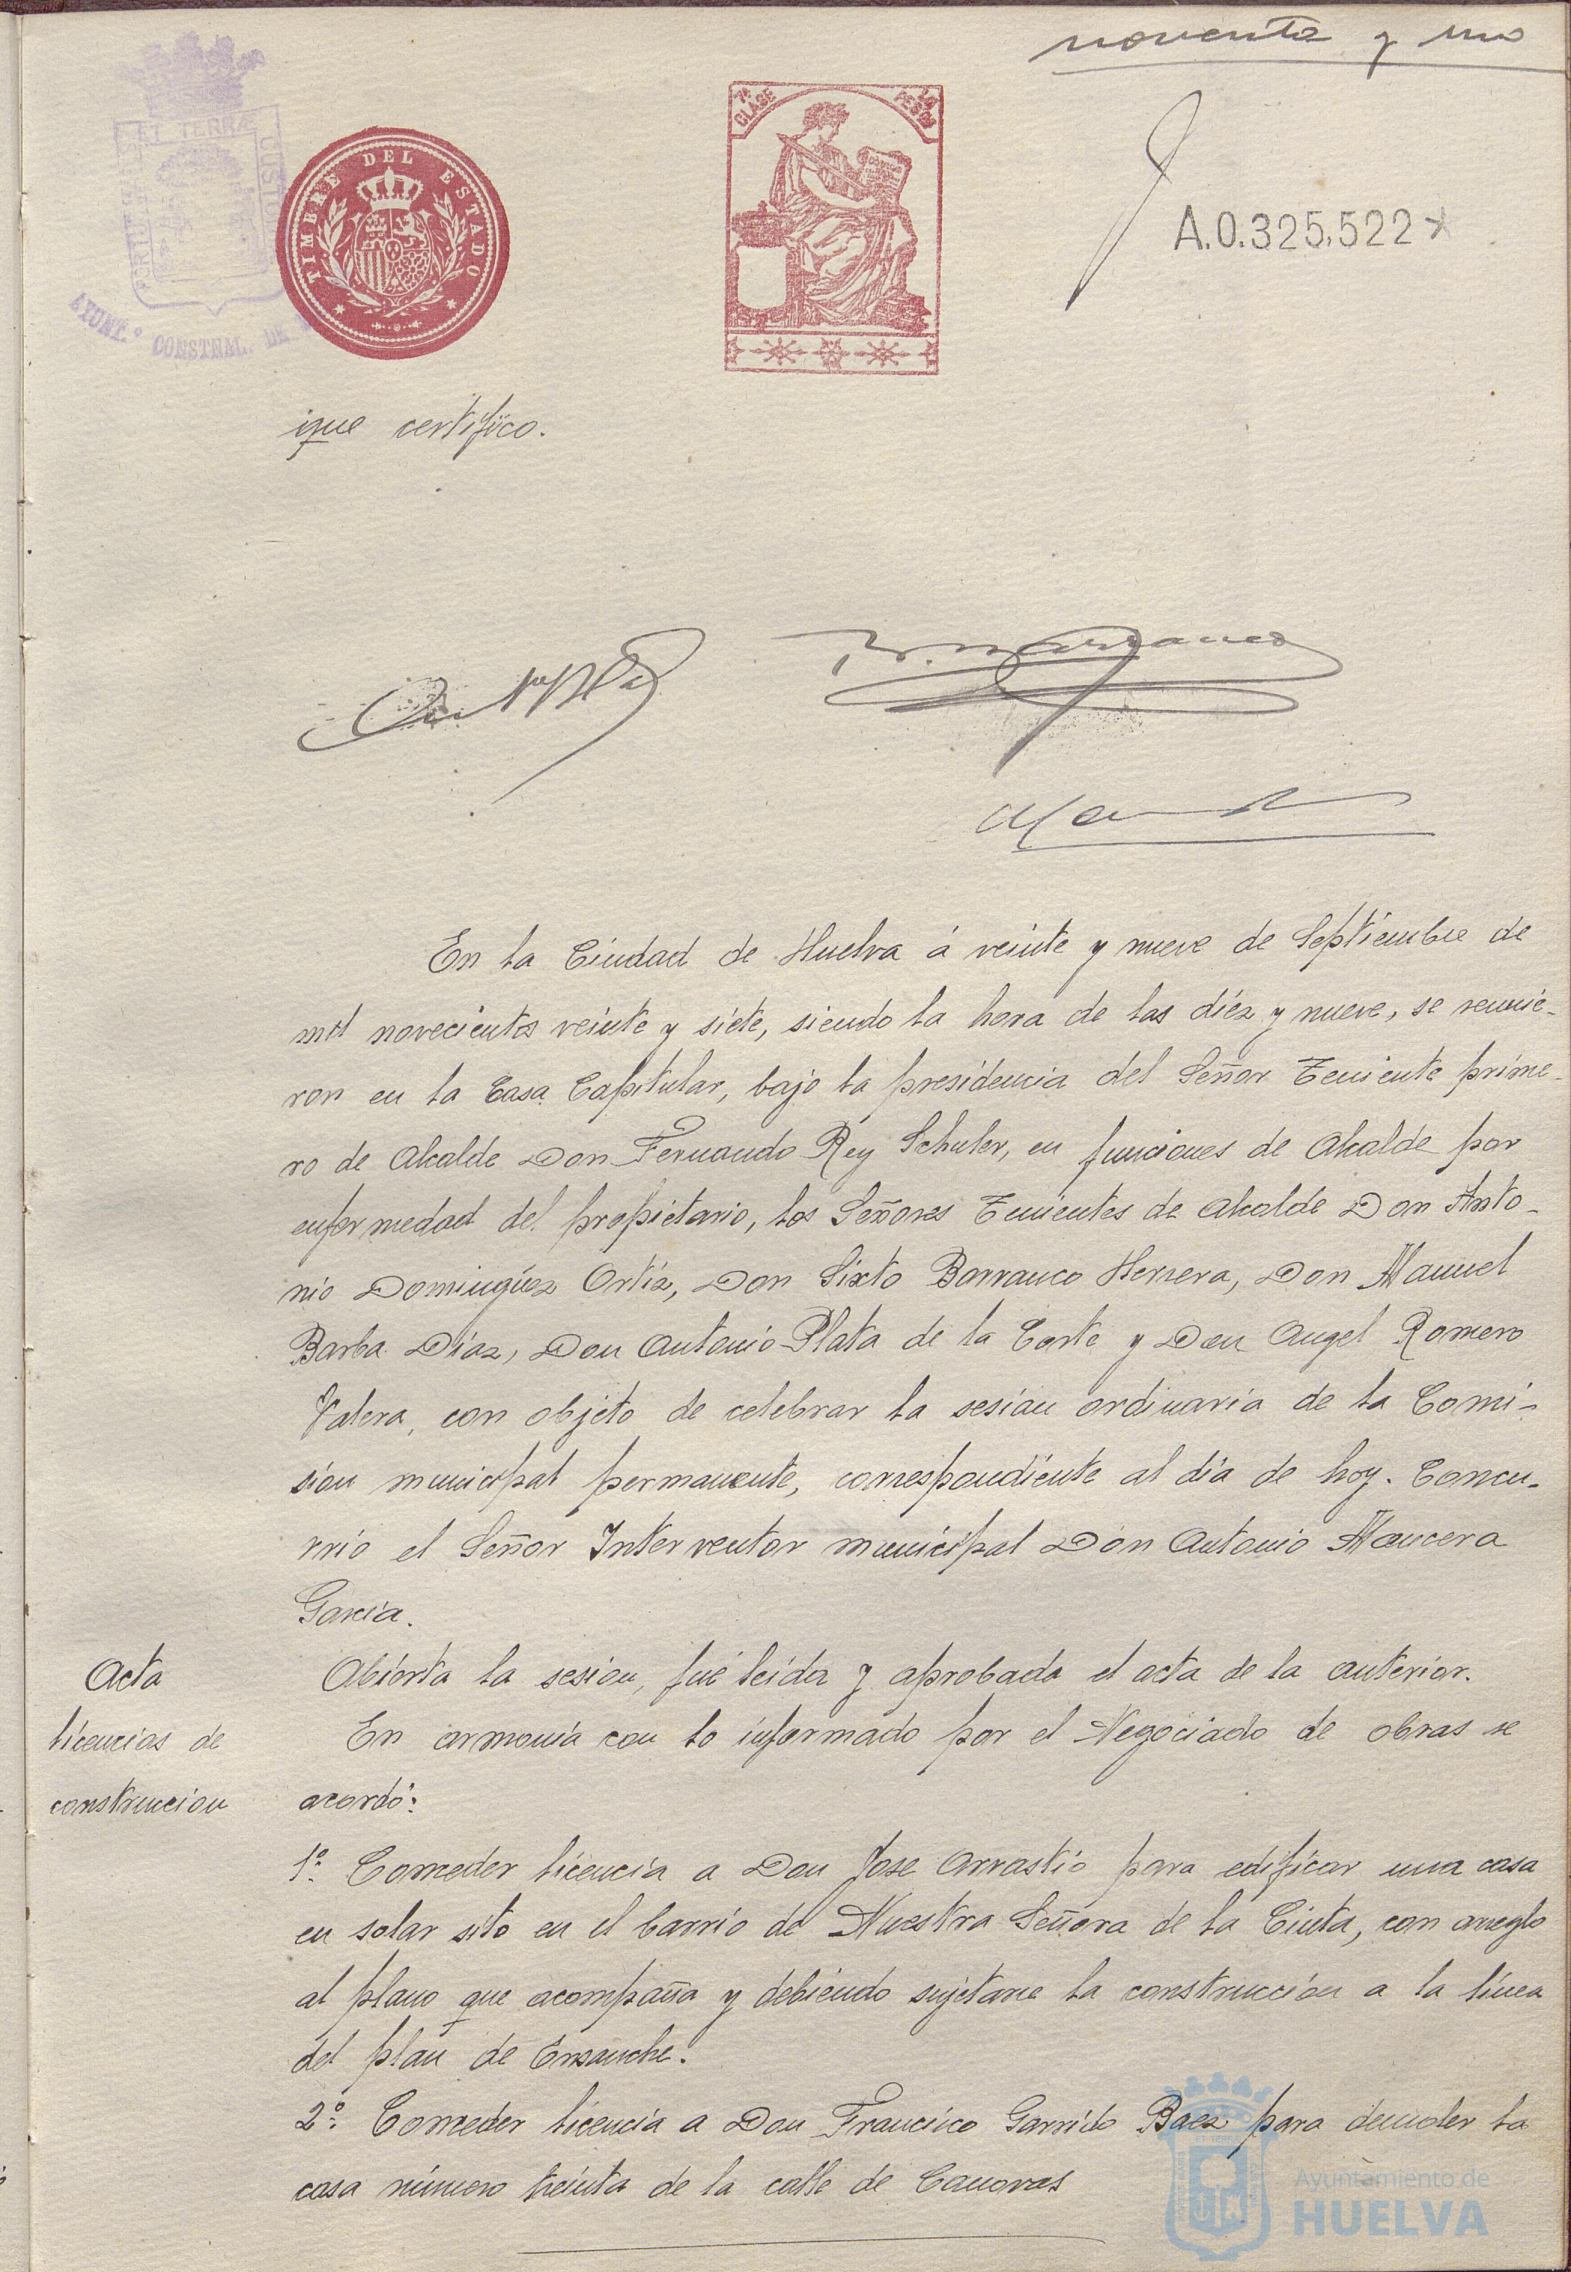 noventa y uno
TIMBRE DEL ESTADO
7ª CLASE
PESOS
A.0.325,522
AYUNT.º CONSTNAL. DE
que certifico.
En la Ciudad de Huelva á veinte y nueve de Septiembre de
mil novecientos veinte y siete, siendo la hora de las diez y nueve, se reunie-
ron en la Casa Capitular, bajo la presidencia del Señor Teniente prime-
ro de Alcalde Don Fernando Rey Schuler, en funciones de Alcalde por
enfermedad del propietario, los Señores Tenientes de Alcalde Don Anto-
nio Dominguez Ortiz, Don Sixto Barranco Herrera, Don Manuel
Barba Diaz, Don Antonio Plata de la Corte y Don Angel Romero
Valera, con objeto de celebrar la sesión ordinaria de la Comi-
sion municipal permanente, correspondiente al dia de hoy. Concu-
rrió el Señor Interventor municipal Don Antonio Mancera
Garcia.
Acta
Abierta la sesion, fué leida y aprobada el acta de la anterior.
licencias de
construccion
En armonia con lo informado por el Negociado de obras se
acordó:
1º Conceder licencia a Don Jose Arrastio para edificar una casa
en solar sito en el barrio de Nuestra Señora de la Cinta, con arreglo
al plano que acompaña y debiendo sujetarse la construcción a la linea
del plan de Ensanche.
2º Conceder licencia a Don Francisco Garrido Baez para demoler la
casa número treinta de la calle de Canovas
Ayuntamiento de
HUELVA